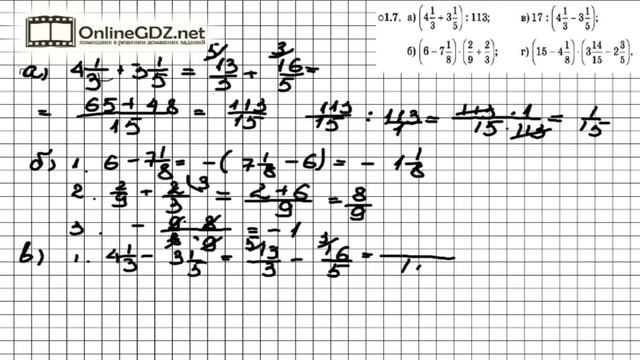 OnlineGDZ.net
помощник в решении домашних заданий
○1.7. а) (4 1/3 + 3 1/5) : 113; в) 17 : (4 1/3 − 3 1/5);
б) (6 − 7 1/8) · (2/9 + 2/3); г) (15 − 4 1/8) · (3 14/15 − 2 3/5).
а) 4 1/3 + 3 1/5 = 5/ 13/3 + 3/ 16/5 =
= (65 + 48)/15 = 113/15 113/15 : 113/1 = (113 · 1)/(15 · 113) = 1/15
б) 1. 6 − 7 1/8 = −(7 1/8 − 6) = − 1 1/8
2. 2/9 + 2/3 \3 = (2 + 6)/9 = 8/9
3. − (9 · 8)/(8 · 9) = − 1
в) 1. 4 1/3 − 3 1/5 = 5/ 13/3 − 3/ 16/5 =